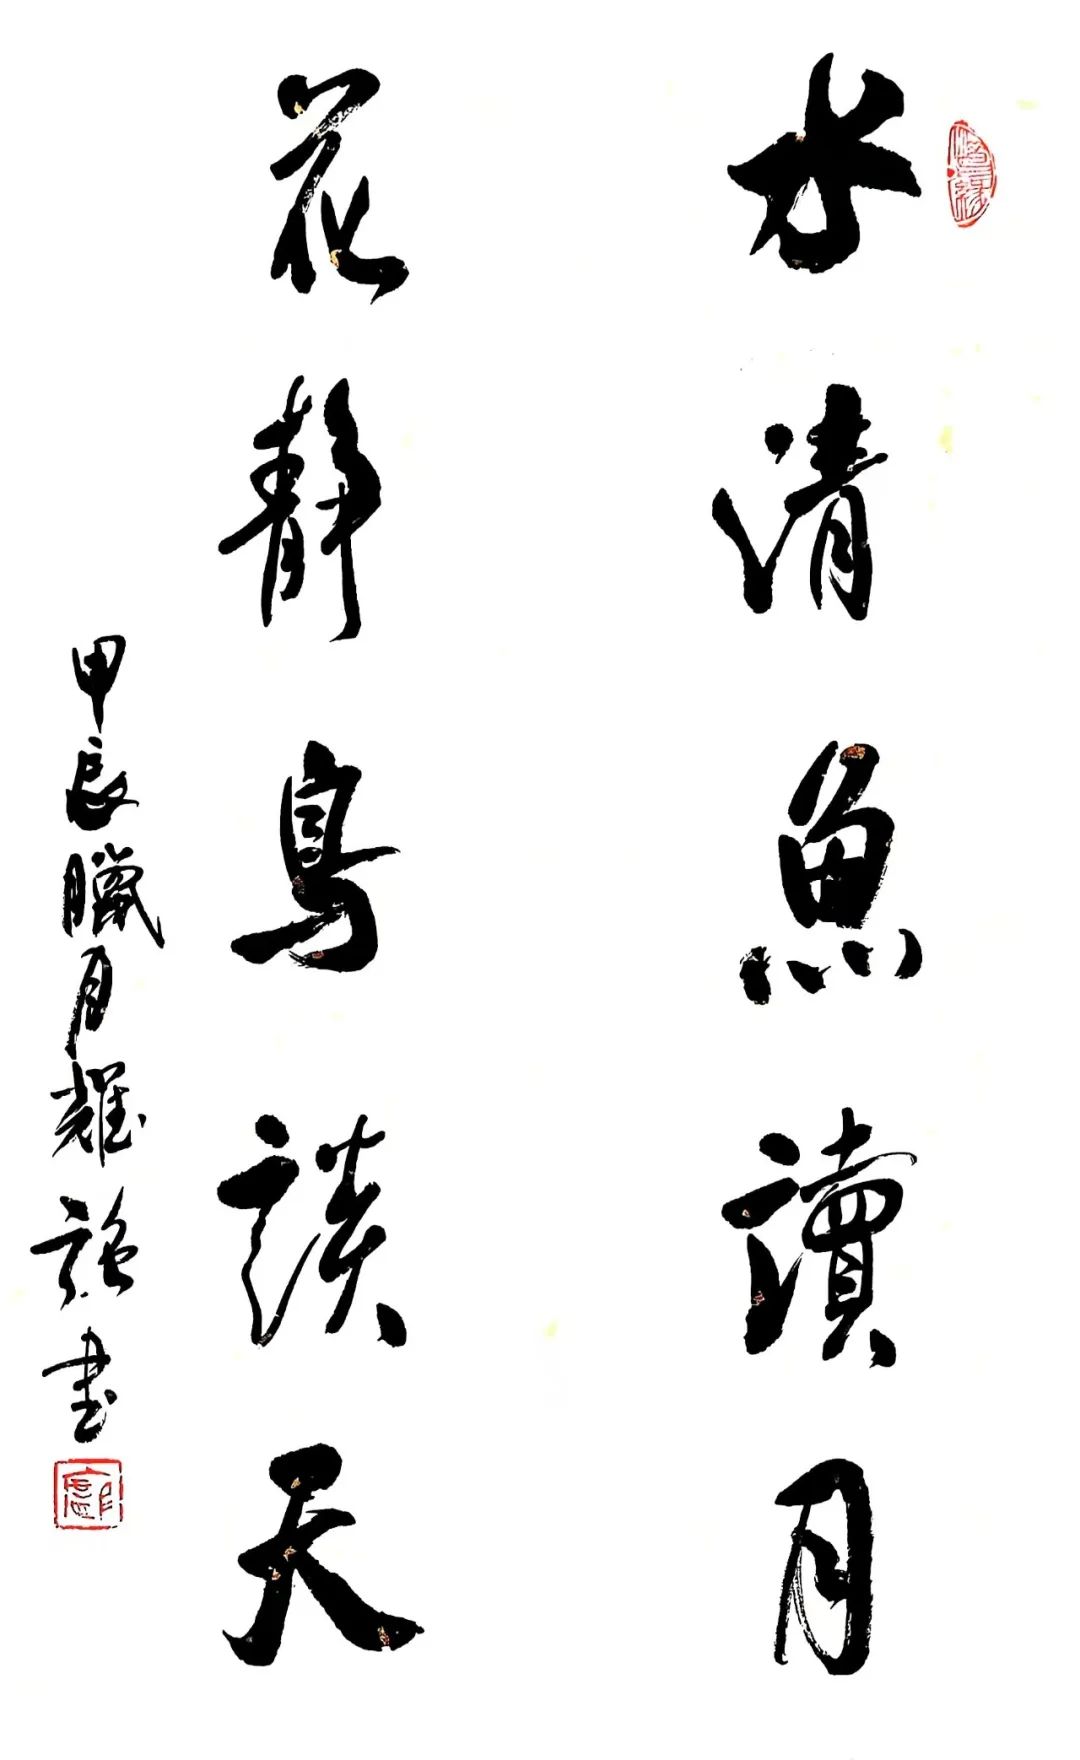 水清魚讀月
花静鳥談天
甲辰臘月耀
書